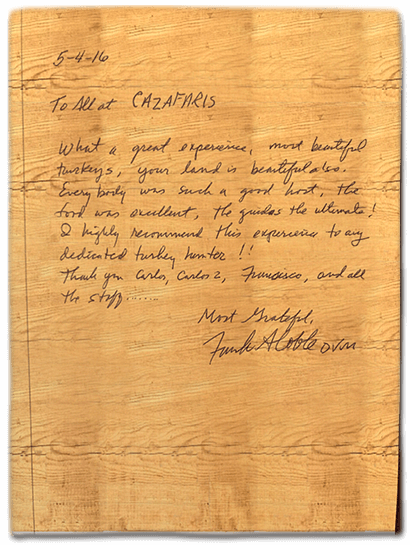 5-4-16
To All at CAZAFARIS
What a great experience, most beautiful
turkeys, your land is beautiful also.
Everybody was such a good host, the
food was excellent, the guides the ultimate!
I highly recommend this experience to any
dedicated turkey hunter!!
Thank you Carlos, Carlos 2, Francesco, and all
the staff......
Most Grateful,
Frank A Noble DVM